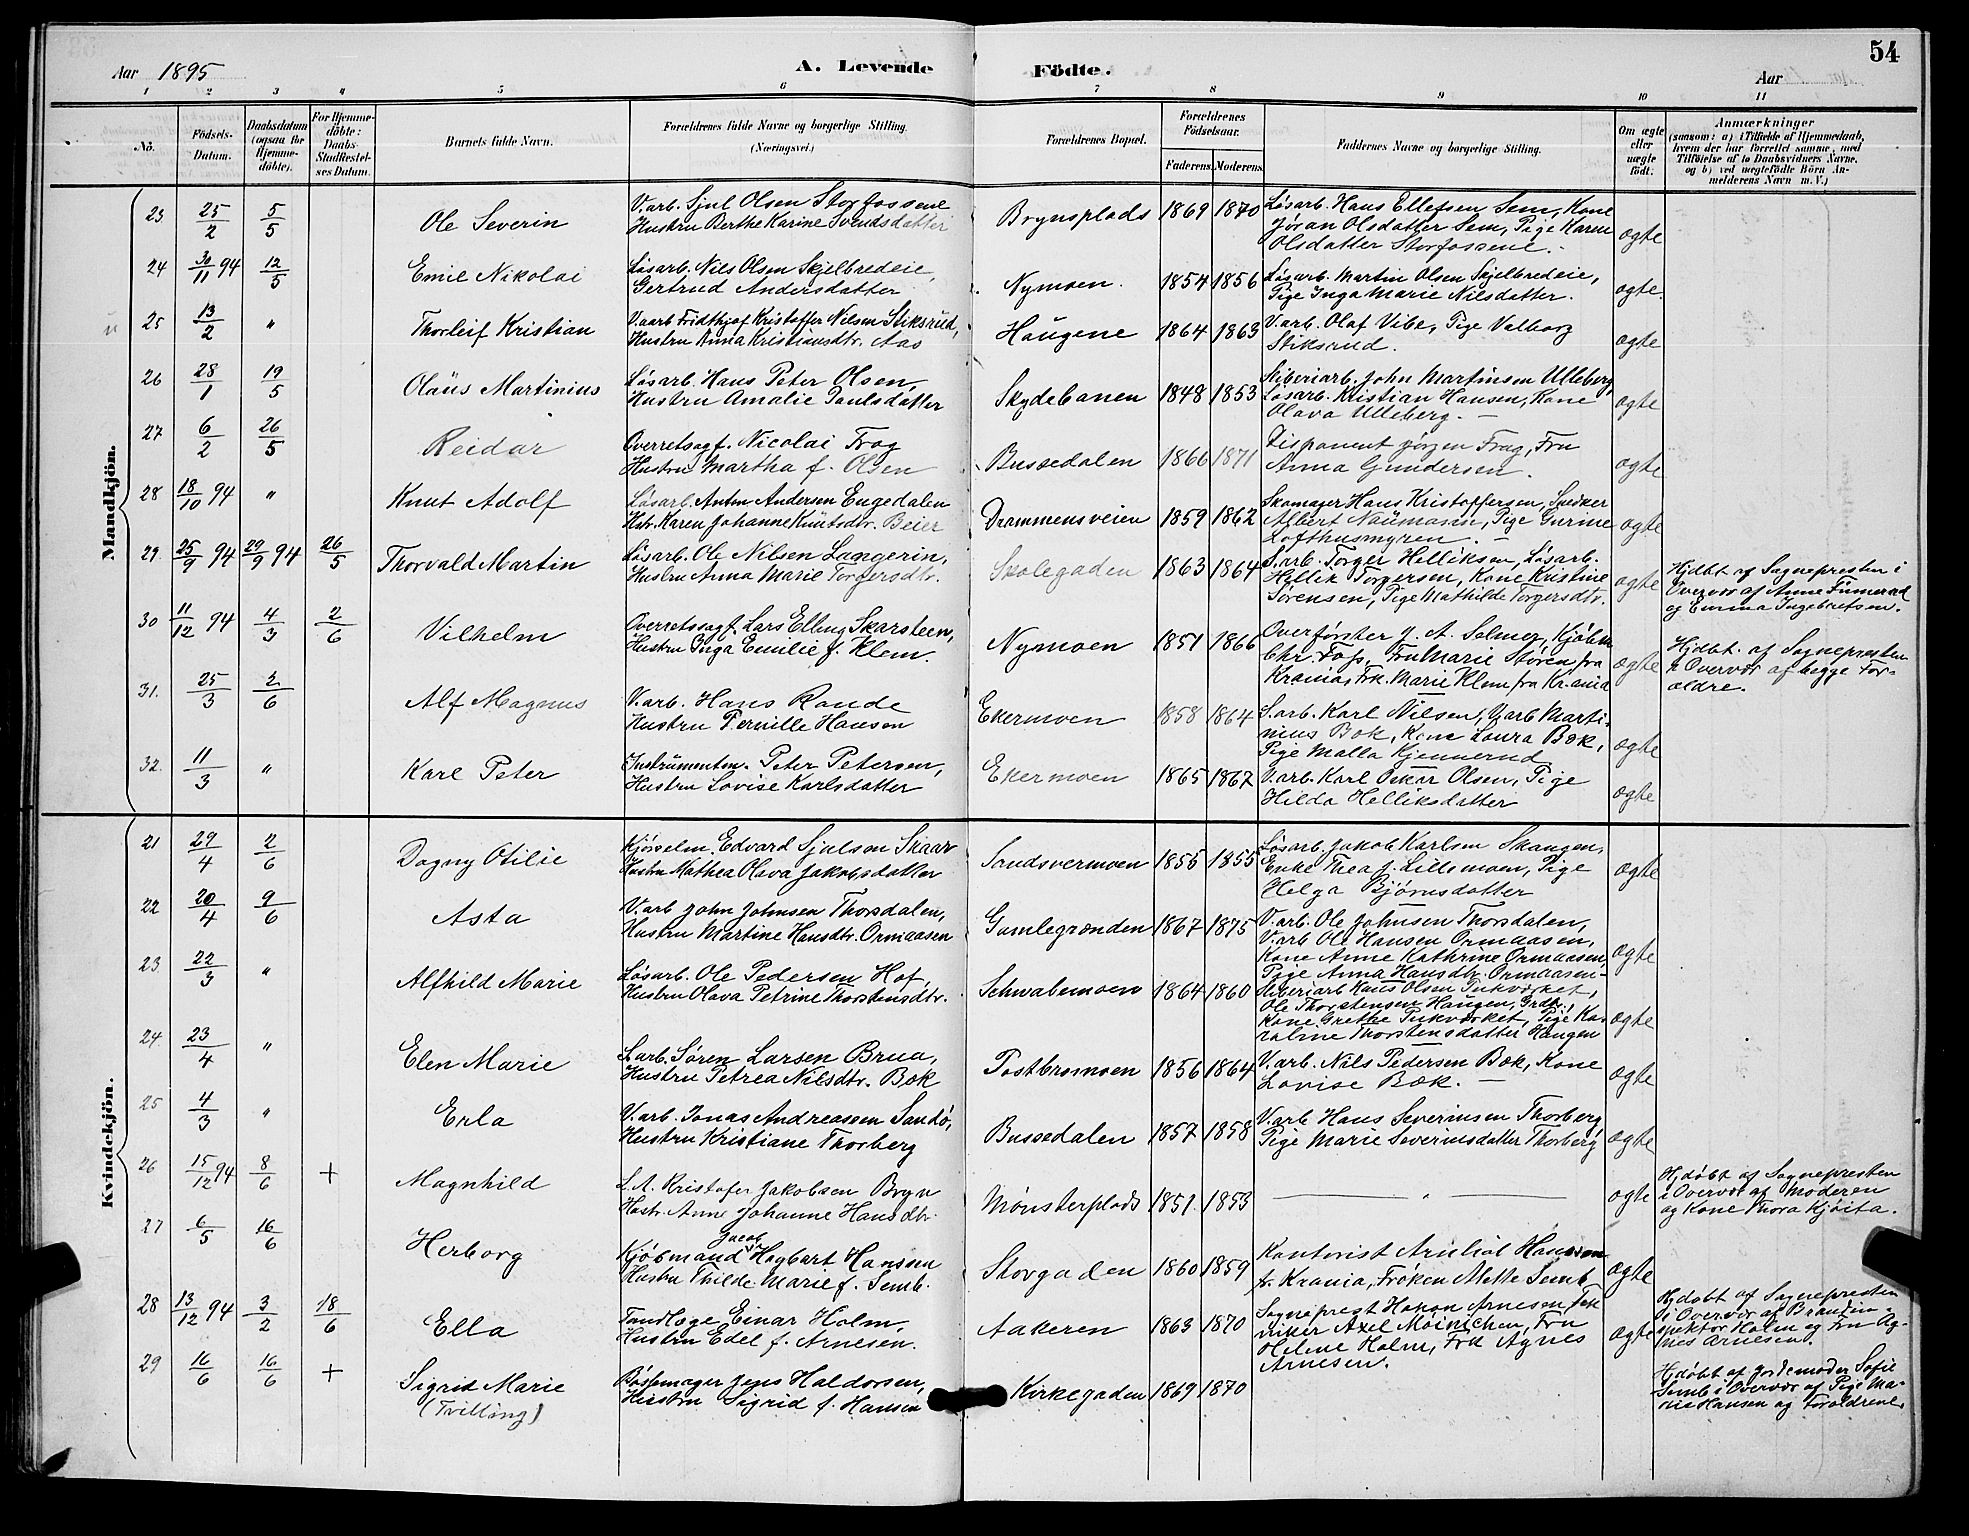 54
Aar 1895
A. Levende Födte.
Aar
1 2 3 4 5 6 7 8 9 10 11
No.
Födsels-Datum.
Daabsdatum (ogsaa for Hjemmedöbte).
For Hjemmedöbte: Daabs-Stadfestelses Datum.
Barnets fulde Navn.
Forældrenes fulde Navne og borgerlige Stilling. (Næringsvei.)
Forældrenes Bopæl.
Forældrenes Födselsaar.
Faderens. Moderens.
Faddernes Navne og borgerlige Stilling.
Om ægte eller uægte födt.
Anmærkninger
(saasom: a) i Tilfælde af Hjemmedaab, hvem der har forrettet samme, med Tilföielse af to Daabsvidners Navne, og b) ved uægtefödte Börn Anmelderens Navn m. V.)
Mandkjön.
23 25/2 5/5 Ole Severin
V.arb. Sjul Olsen Storfossene
Hustru Berthe Karine Svendsdatter
Brynsplads 1869 1870
Løsarb. Hans Ellefsen Sem, Kone
Jøran Olsdatter Sem, Pige Karen
Olsdatter Storfossene.
ægte
24 30/11 94 12/5 Emil Nikolai
Løsarb. Nils Olsen Skjelbredeie,
Gertrud Andersdatter
Nymoen. 1854 1856
Løsarb. Martin Olsen Skjelbredeie,
Pige Inga Marie Nilsdatter.
ægte.
25 13/2 " Thorleif Kristian
V.arb Fridthjof Kristoffer Nilsen Stiksrud,
Hustru Anna Kristiansdtr. Aas
Haugene 1864 1863
V.arb. Olaf Vibe, Pige Valborg
Stiksrud.
ægte
26 28/1 19/5 Olaus Martinius
Løsarb. Hans Peter Olsen,
Hustru Amalie Paulsdatter
Skydebanen 1848 1853
Sliberiarb. John Martinsen Ulleberg
Løsarb. Kristian Hansen, Kone
Olava Ulleberg. —
ægte
27 6/2 26/5 Reidar
Overretssagf. Nicolai Trag
Hustru Martha f. Olsen
Bussedalen 1866 1871
Disponent Jörgen Trag, Fru
Anna Gundersen.
ægte
28 18/10 94 " Knut Adolf
Løsarb. Anton Andersen Engedalen
Hstr. Karen Johanne Knutsdtr. Beier
Drammensveien 1859 1862
Skomager Hans Kristoffersen, Snedker
Albert Naumann, Pige Gurine
Lofthusmyren. —
ægte
29. 25/9 94 29/9 94 26/5 Thorvald Martin
Løsarb. Ole Nilsen Langerin,
Hustru Anna Marie Torgersdtr.
Skolegaden 1863 1864
S.arb. Torger Helliksen, Løsarb.
Hellik Torgersen, Kone Kristine
Sørensen, Pige Mathilde Torgersdtr.
ægte
Hjdøbt af Sognepresten i
Overvær af Anne Fumerud
og Emma Ingebretsen.
30 11/12 94 4/3 2/6 Vilhelm
Overretssagf. Lars Elling Skarsteen,
Hustru Inga Emilie f. Klem.
Nymoen 1851 1866
Overförster J. A. Selmer, Kjöbm
Chr. Foss, Fru Marie Støren fra
Krania, Frk. Marie Klem fra Kr.ania
ægte
Hjdøbt. af Sognepresten
i Overvær af begge For-
ældre.
31. 25/3 2/6 Alf Magnus
V.arb. Hans Rande
Hustru Pernille Hansen
Ekermoen 1858 1864
S.arb. Karl Nilsen, V.arb Marti-
nius Bæk, Kone Laura Bæk,
Pige Malla Kjennerud
ægte
32. 11/3 " Karl Peter
Instrumentm. Peter Petersen,
Hustru Lovise Karlsdatter
Ekermoen 1865 1867
V.arb. Karl Oskar Olsen, Pige
Hilda Helliksdatter
ægte
Kvindekjön.
21 29/4 2/6 Dagny Otilie
Kjørselm. Edvard Sjulson Skaar
Hustru Mathea Olava Jakobsdatter
Sandsvermoen 1855 1855
Løsarb. Jakob Karlsen Skaugen,
Enke Thea J. Lillemoen, Pige
Helga Bjørnsdatter
ægte
22 20/4 9/6 Asta
V.arb John Johnsen Thorsdalen,
Hustru Martine Hansdtr. Ormaasen
Gamlegrønden 1867 1875
V.arb. Ole Johnsen Thorsdalen,
V.arb Ole Hansen Ormaasen,
Kone Anne Kathrine Ormaasen
Pige Anna Hansdtr. Ormaasen
ægte
23. 22/3 " Alfhild Marie
Løsarb. Ole Pedersen Hof,
Hustru Olava Petrine Thorstensdtr.
Schwabemoen 1864 1860
Sliberiarb Hans Olsen Pukværket,
Ole Thorstensen Haugen, Grdbr.,
Kone Grethe Pukværket, Pige Ka-
raline Thorstensdatter Haugen
ægte
24. 23/4 " Elen Marie
S.arb. Søren Larsen Brua,
Hustru Petrea Nilsdtr. Bæk
Postbromoen 1856 1864
V.arb. Nils Pedersen Bæk, Kone
Lovise Bæk. —
ægte
25 4/3 " Erla
V.arb. Jonas Andreassen Sandø,
Hustru Kristiane Thorberg
Bussedalen 1857 1858
V.arb Hans Severinsen Thorberg
Pige Marie Severinsdatter Thorberg
ægte
26 15/12 94 8/6 + Magnhild
L.A. Kristofer Jakobsen Bryn
Hustr. Anne Johanne Hansdtr.
Mønsterplads 1851. 1853
— " —
ægte
Hjdøbt af Sognepresten
i Overvær af Moderen
og Kone Thora Kjøsta.
27 6/5 16/6 Herborg
Kjøbmand Jacob Hagbart Hanssen
Hustru Thilda Marie f. Semb.
Storgaden 1860 1859
Kontorist Arnliot Hanssen
fr. Krania, Frøken Mette Semb
ægte
28 13/12 94 3/2 18/6 Ella
Tandlæge Einar Holm,
Hustru Edel f. Arnesen.
Aakeren 1863 1870
Sogneprest Hakon Arnesen, Tek
niker Axel Moinichen, Fru
Helene Holm, Frk Agnes
Arnesen.
ægte
Hjdøbt af Sognepresten
i Overvær af Brandin-
spektør Holm og Fru Ag-
nes Arnesen.
29 16/6 16/6 + Sigrid Marie
(Tvilling)
Bøssemager Jens Haldorsen,
Hustru Sigrid f. Hansen
Kirkegaden 1869 1870
Hjdøbt af Jordemoder Sofie
Semb i Overvær af Pige Ma-
rie Hansen og Forældrene.